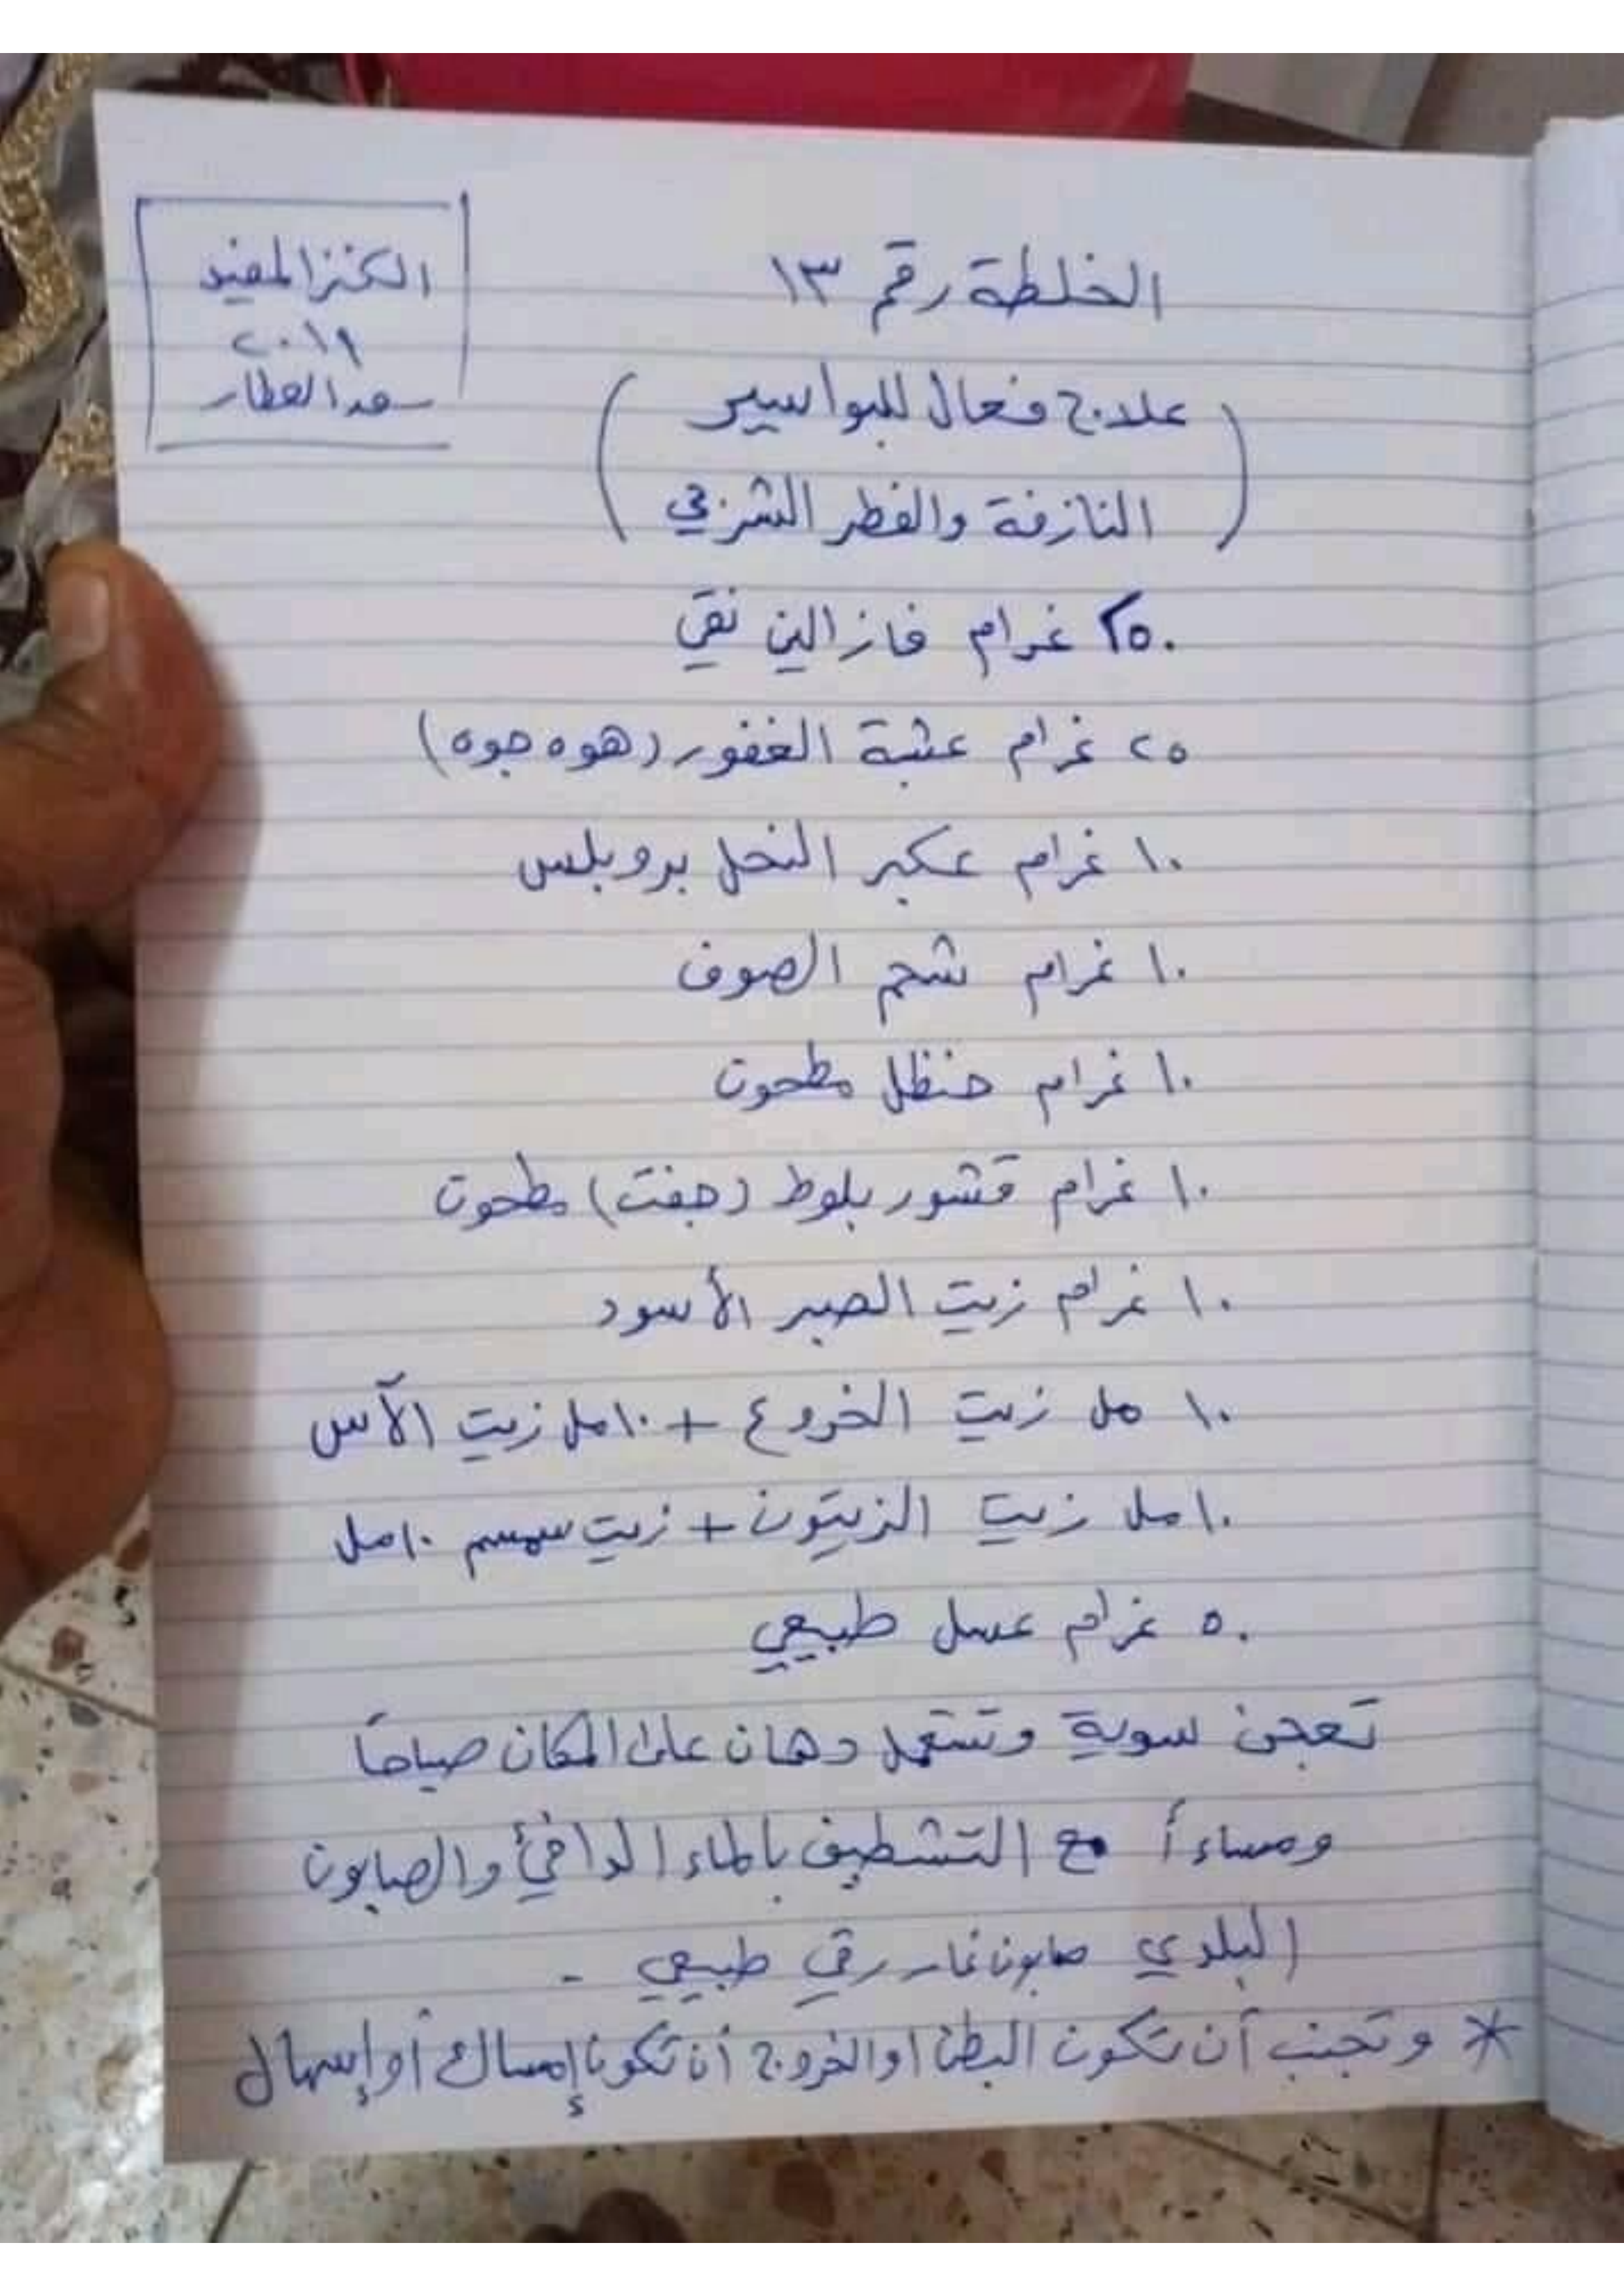 الكنز المفيد
٢٠١٩
سعد العطار
الخلطة رقم ١٣
(علاج فعال للبواسير
النازفة والفطر الشرجي)
٢٥٠ غرام فازالين نقي
٢٥ غرام عشبة الغفور (هوه جوه)
١٠ غرام عكبر النحل بروبلس
١٠ غرام شحم الصوف
١٠ غرام حنظل مطحون
١٠ غرام قشور بلوط (جفت) مطحون
١٠ غرام زيت الصبر الأسود
١٠ مل زيت الخروع + ١٠ مل زيت الآس
١٠ مل زيت الزيتون + زيت سمسم ١٠ مل
٥٠ غرام عسل طبيعي
تعجن سوية وتستعمل دهان على المكان صباحاً
ومساءأ مع التشطيف بالماء الدافئ والصابون
البلدي صابون غار رقي طبيعي -
* وتجنب أن تكون البطن او الخروج أن تكون إمساك أو إسهال